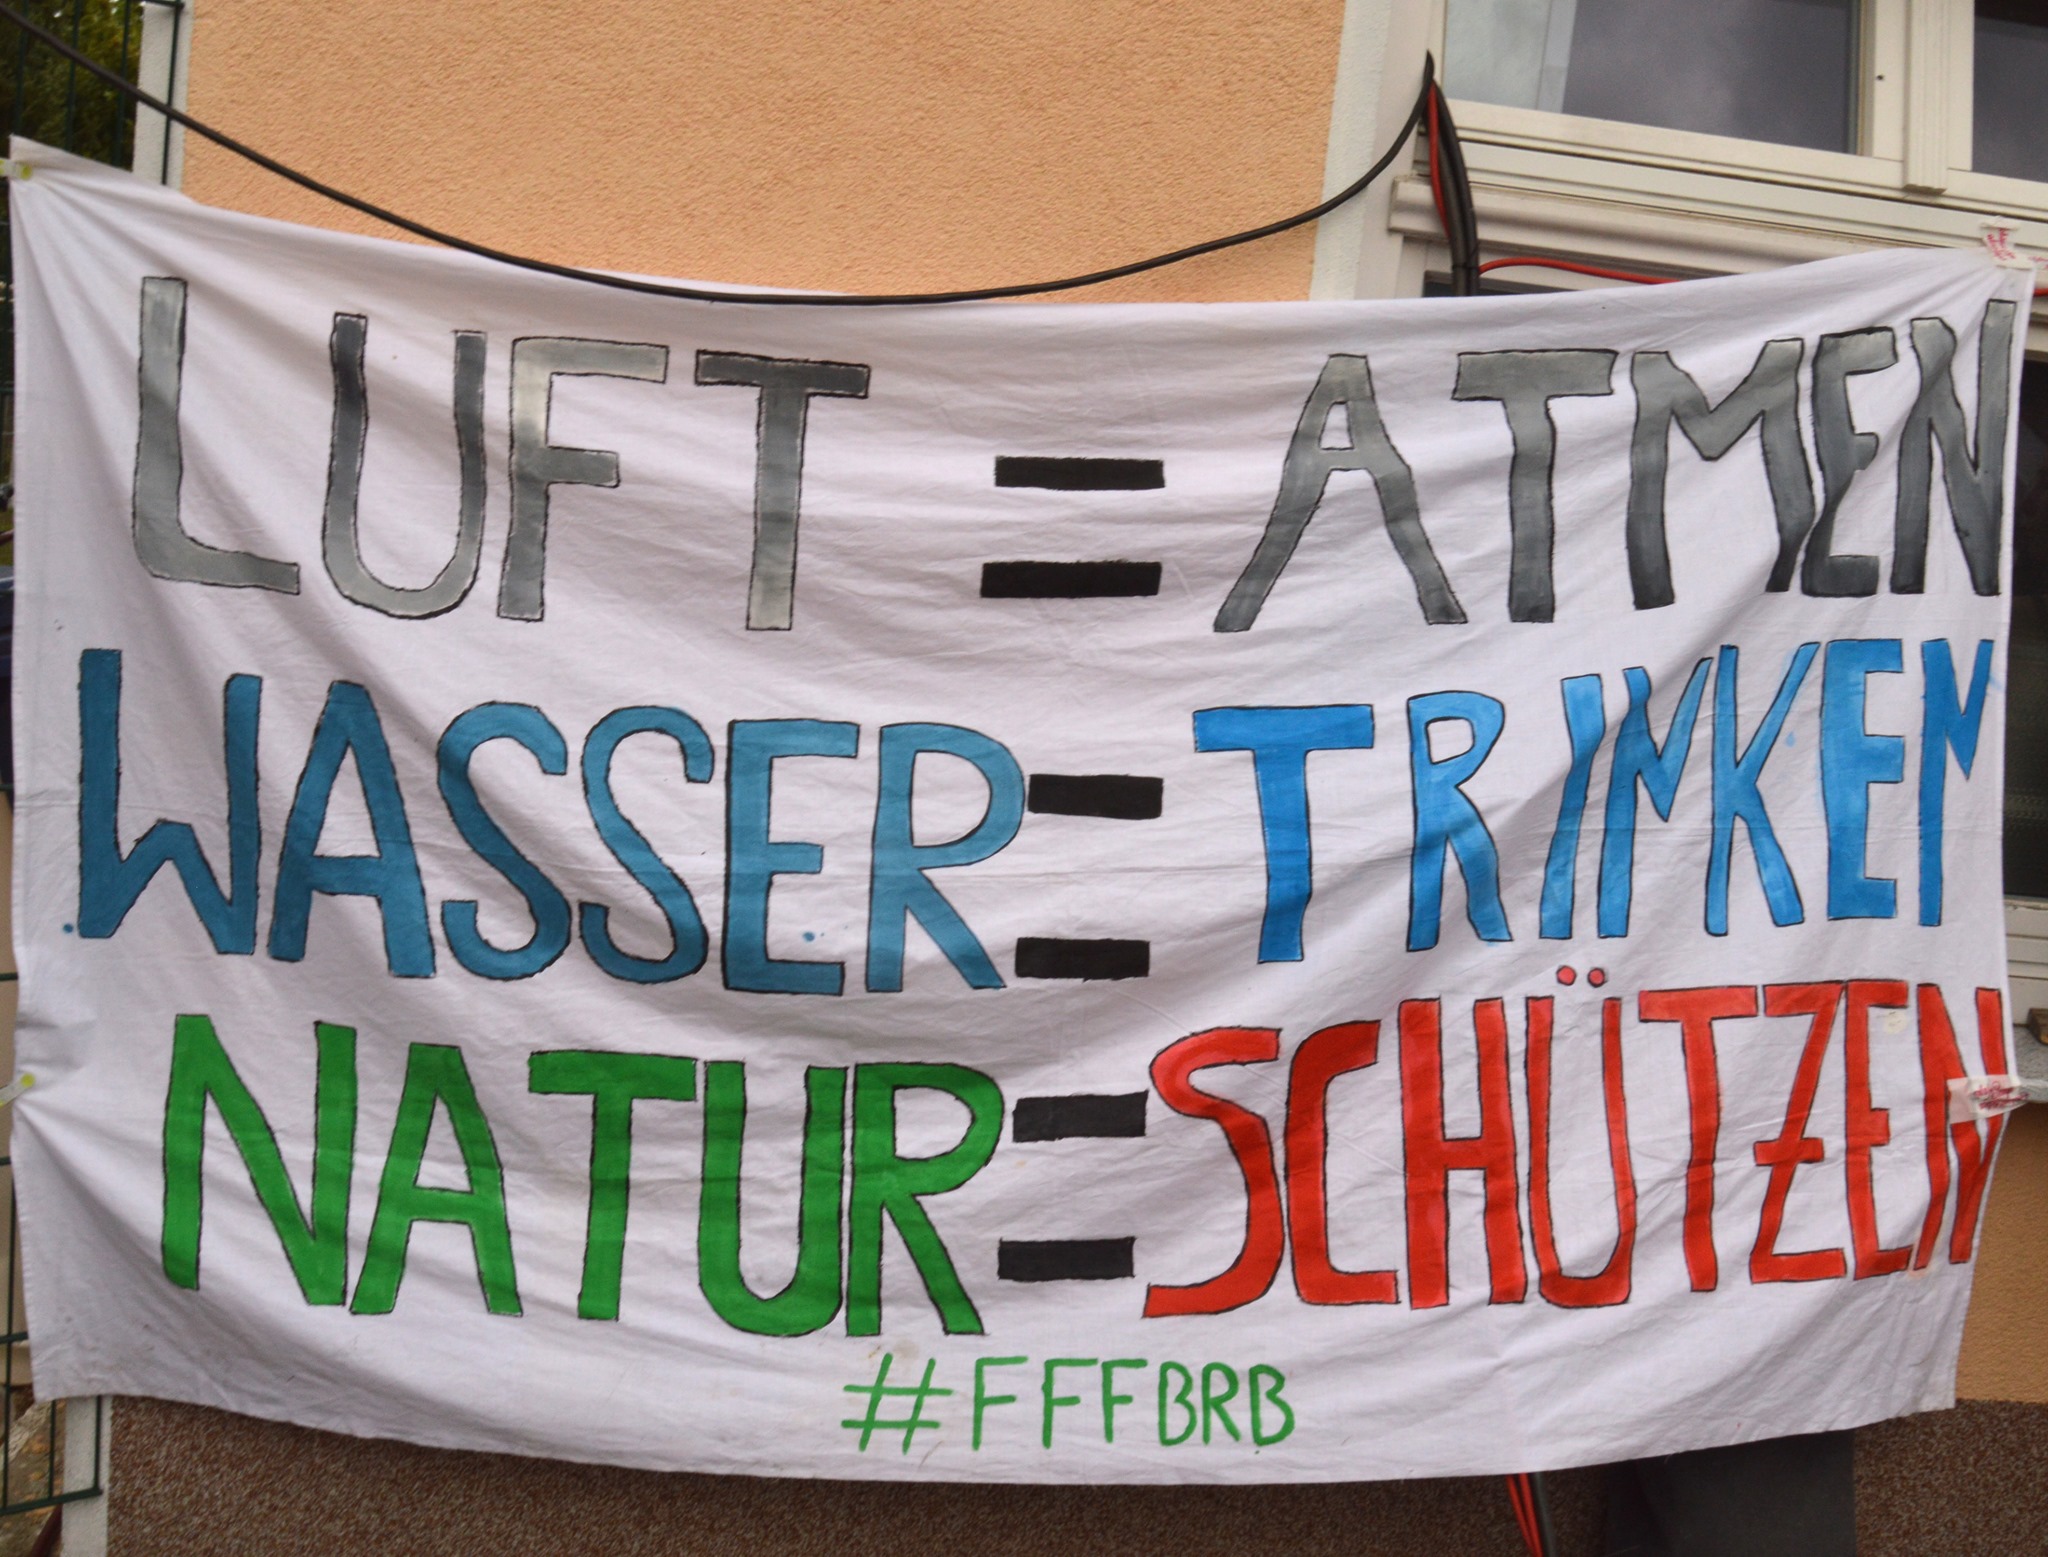 LUFT = ATMEN
WASSER = TRINKEN
NATUR = SCHÜTZEN
#FFFBRB